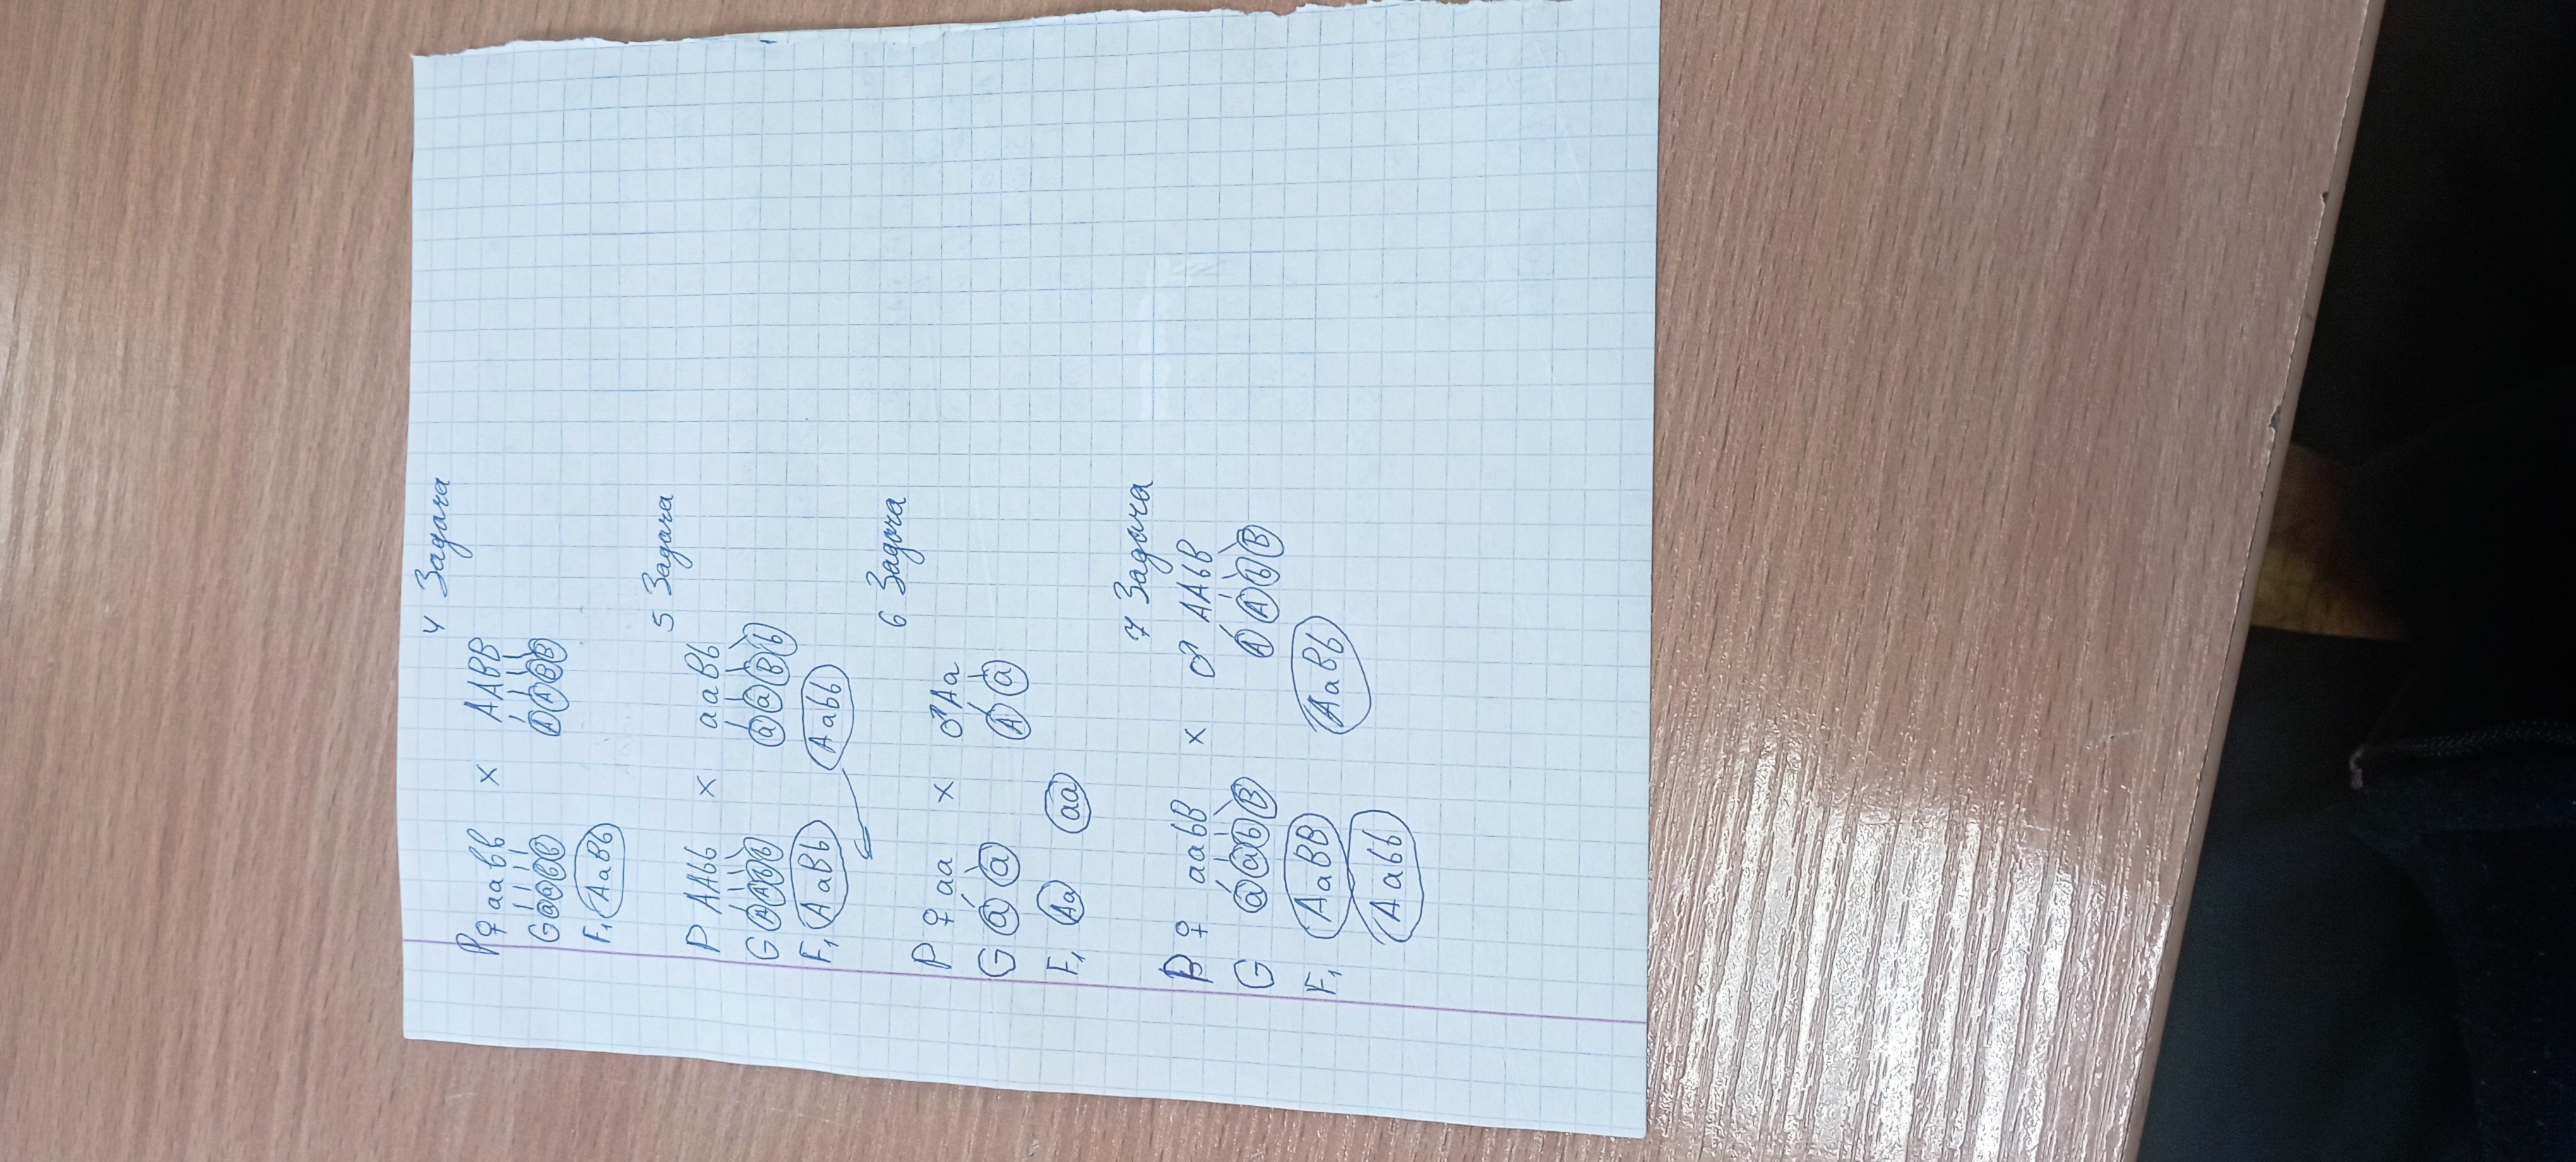 4 Задача
P ♀ aabb × AABB
G a a b b A A B B
F₁ AaBb
5 Задача
P AAbb × aaBb
G A A b b a a B b
F₁ AaBb Aabb
6 Задача
P ♀ aa × ♂ Aa
G a a A a
F₁ Aa aa
7 Задача
P ♀ aabB × ♂ AAbB
G a a b B A A b B
F₁ AaBB AaBb
Aabb